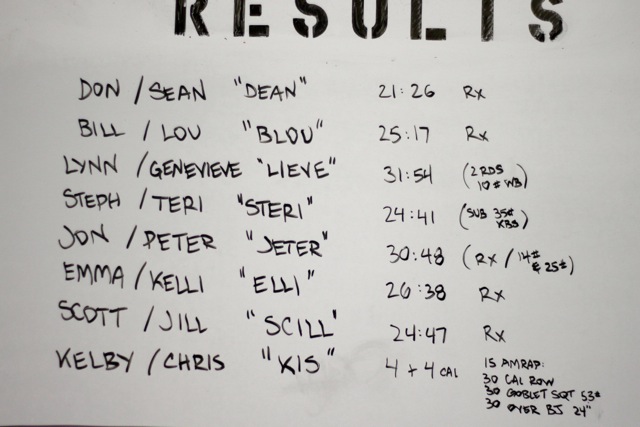 RESULTS
DON / SEAN "DEAN" 21:26 Rx
BILL / LOU "BLOU" 25:17 Rx
LYNN / GENEVIEVE "LIEVE" 31:54 (2 RDS 10# WB)
STEPH / TERI "STERI" 24:41 (SUB 35# KBS)
JON / PETER "JETER" 30:48 (Rx / 14# & 25#)
EMMA / KELLI "ELLI" 26:38 Rx
SCOTT / JILL "SCILL" 24:47 Rx
KELBY / CHRIS "KIS" 4 + 4 CAL
15 AMRAP:
30 CAL ROW
30 GOBLET SQT 53#
30 OVER BJ 24"